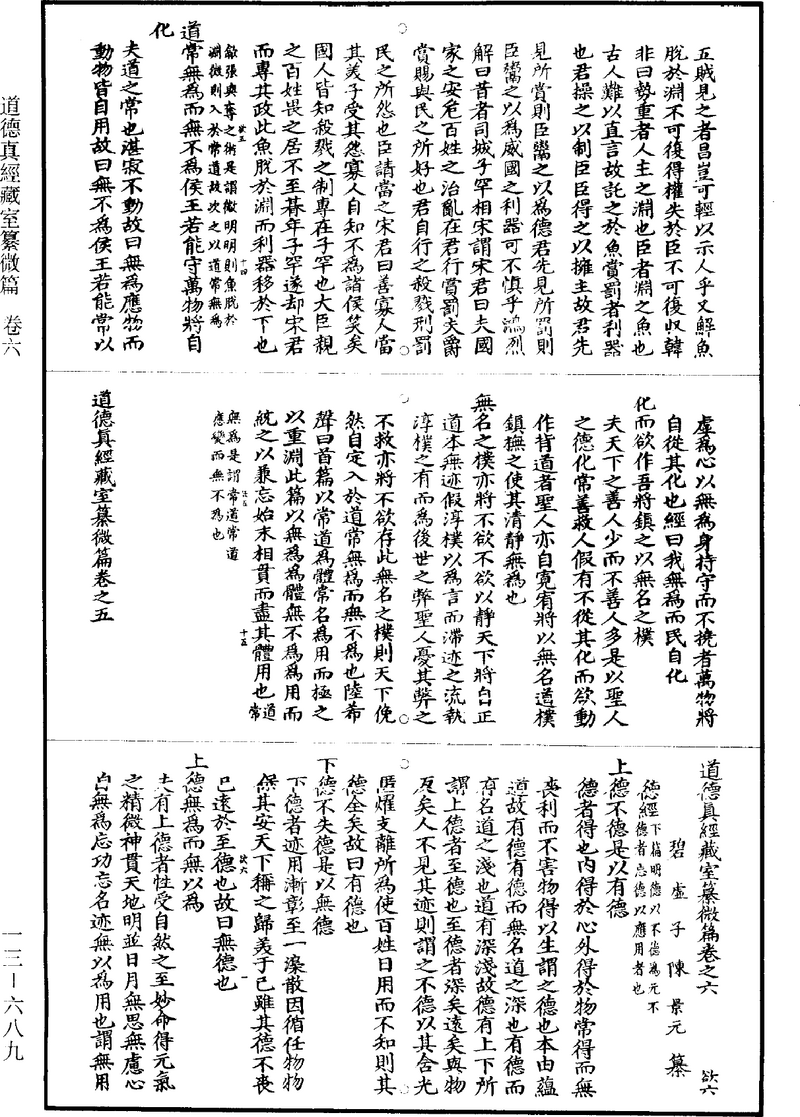 五賊見之者昌豈可輕以示人乎又解魚
脫於淵不可復得權失於臣不可復収韓
非曰勢重者人主之淵也臣者淵之魚也
古人難以直言故託之於魚賞罰者利器
也君操之以制臣臣得之以擁主故君先
見所賞則臣鬻之以為德君先見所罰則
臣鬻之以為威國之利器可不慎乎鴻烈
解曰昔者司城子罕相宋謂宋君曰夫國
家之安危百姓之治亂在君行賞罰夫爵
賞賜與民之所好也君自行之殺戮刑罰
民之所怨也臣請當之宋君曰善寡人當
其美子受其怨寡人自知不為諸侯笑矣
國人皆知殺戮之制專在子罕也大臣親
之百姓畏之居不至朞年子罕遂却宋君
而專其政此魚脫於淵而利器移於下也
歙張與奪之術是謂微明明則魚脫於
淵微則入於常道故次之以道常無為
欲五
十四
道常無為而無不為侯王若能守萬物將自
化
夫道之常也湛寂不動故曰無為應物而
動物皆自用故曰無不為侯王若能常以
虛為心以無為身持守而不撓者萬物將
自從其化也經曰我無為而民自化
化而欲作吾將鎮之以無名之樸
夫天下之善人少而不善人多是以聖人
之德化常善救人假有不從其化而欲動
作背道者聖人亦自寛宥將以無名道樸
鎮撫之使其清靜無為也
無名之樸亦將不欲不欲以靜天下將自正
道本無迹假淳樸以為言而滯迹之流執
淳樸之有而為後世之弊聖人憂其弊之
不救亦將不欲存此無名之樸則天下俛
然自定入於道常無為而無不為也陸希
聲曰首篇以常道為體常名為用而極之
以重淵此篇以無為為體無不為為用而
統之以兼忘始末相貫而盡其體用也常道
無為是謂常道常道
應變而無不為也
欲五
十五
道德真經藏室纂微篇卷之五
道德真經藏室纂微篇卷之六
欲六
碧虛子陳景元纂
德經下篇明德以不德為元不
德者忘德以應用者也
上德不德是以有德
德者得也內得於心外得於物常得而無
喪利而不害物得以生謂之德也本由蘊
道故有德有德而無名道之深也有德而
有名道之淺也道有深淺故德有上下所
謂上德者至德也至德者深矣遠矣與物
反矣人不見其迹則謂之不德以其含光
匿燿支離所為使百姓日用而不知則其
德全矣故曰有德也
下德不失德是以無德
下德者迹用漸彰至一漻散因循任物物
保其安天下稱之歸美于己雖其德不喪
已遠於至德也故曰無德也
欲六
一
上德無為而無以為
夫有上德者性受自然之至妙命得元氣
之精微神貫天地明並日月無思無慮心
自無為忘功忘名迹無以為用也謂無用
道德真經藏室纂微篇 卷六
一三-六八九